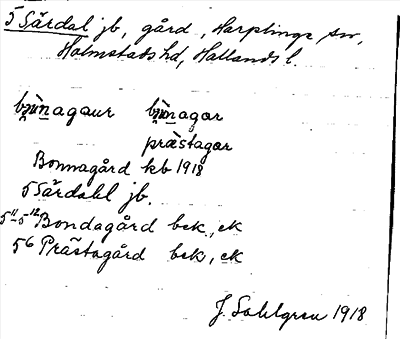 5 Särdal jb, gård, Harplinge sn,
Halmstads hd, Hallands l.
bɯ̀nagaur bɯ̀nagar
præ̀stagar
Bonnagård kb 1918
5 Särdahl jb.
5¹¹-5¹² Bondagård bek, ek
5⁶ Prästagård bek, ek
J Sahlgren 1918